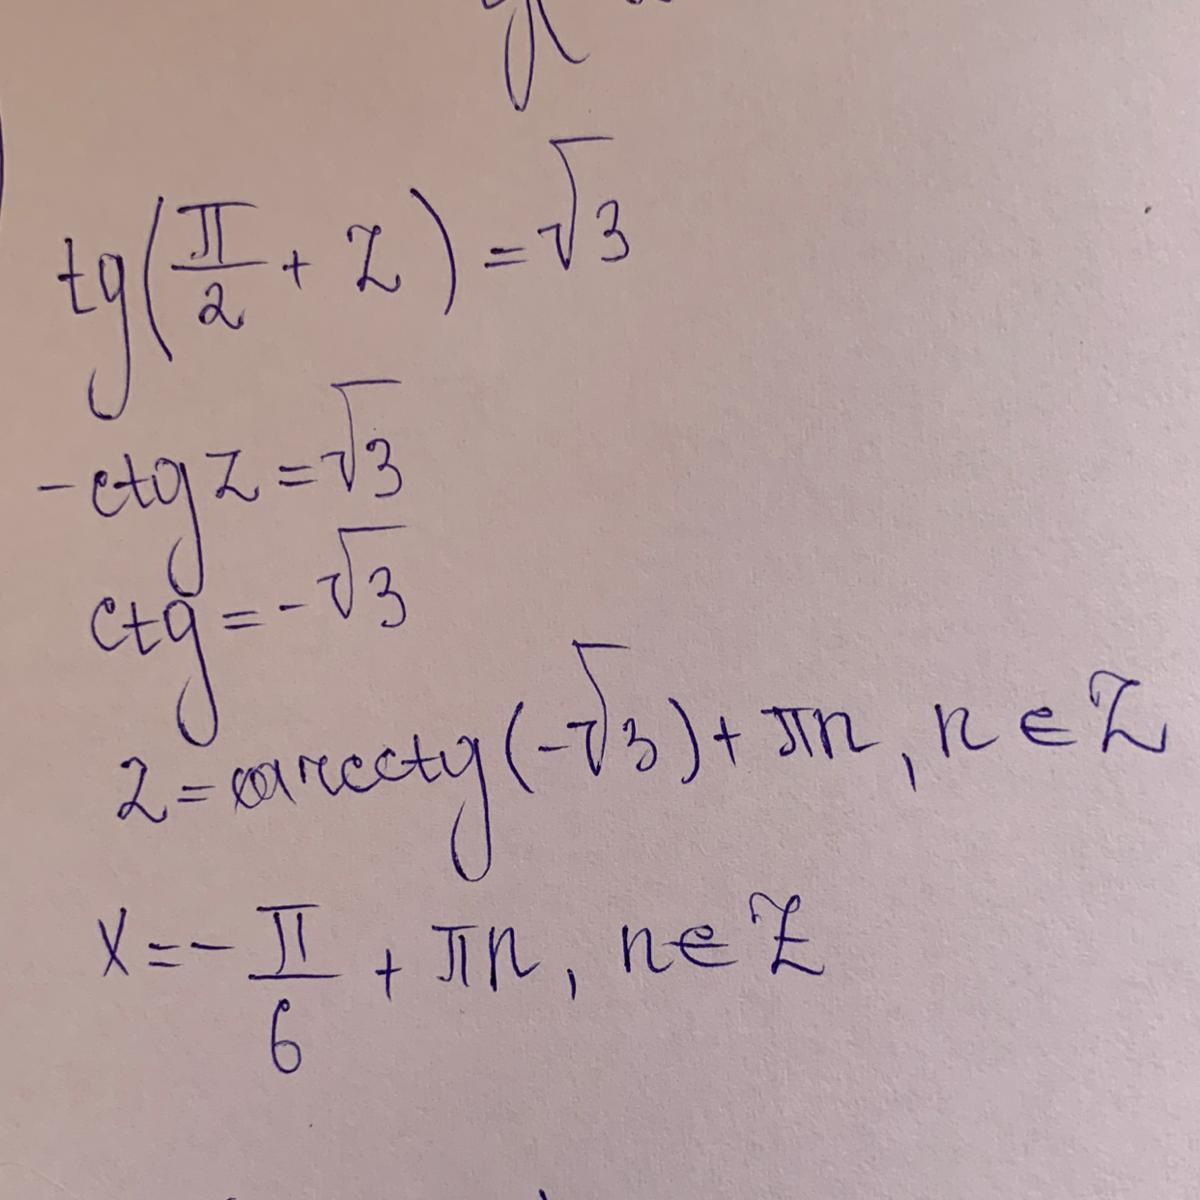 tg(π/2 + z) = √3
-ctg z = √3
ctg = -√3
z = arcctg(-√3) + πn, n ∈ Z
x = -π/6 + πn, n ∈ Z